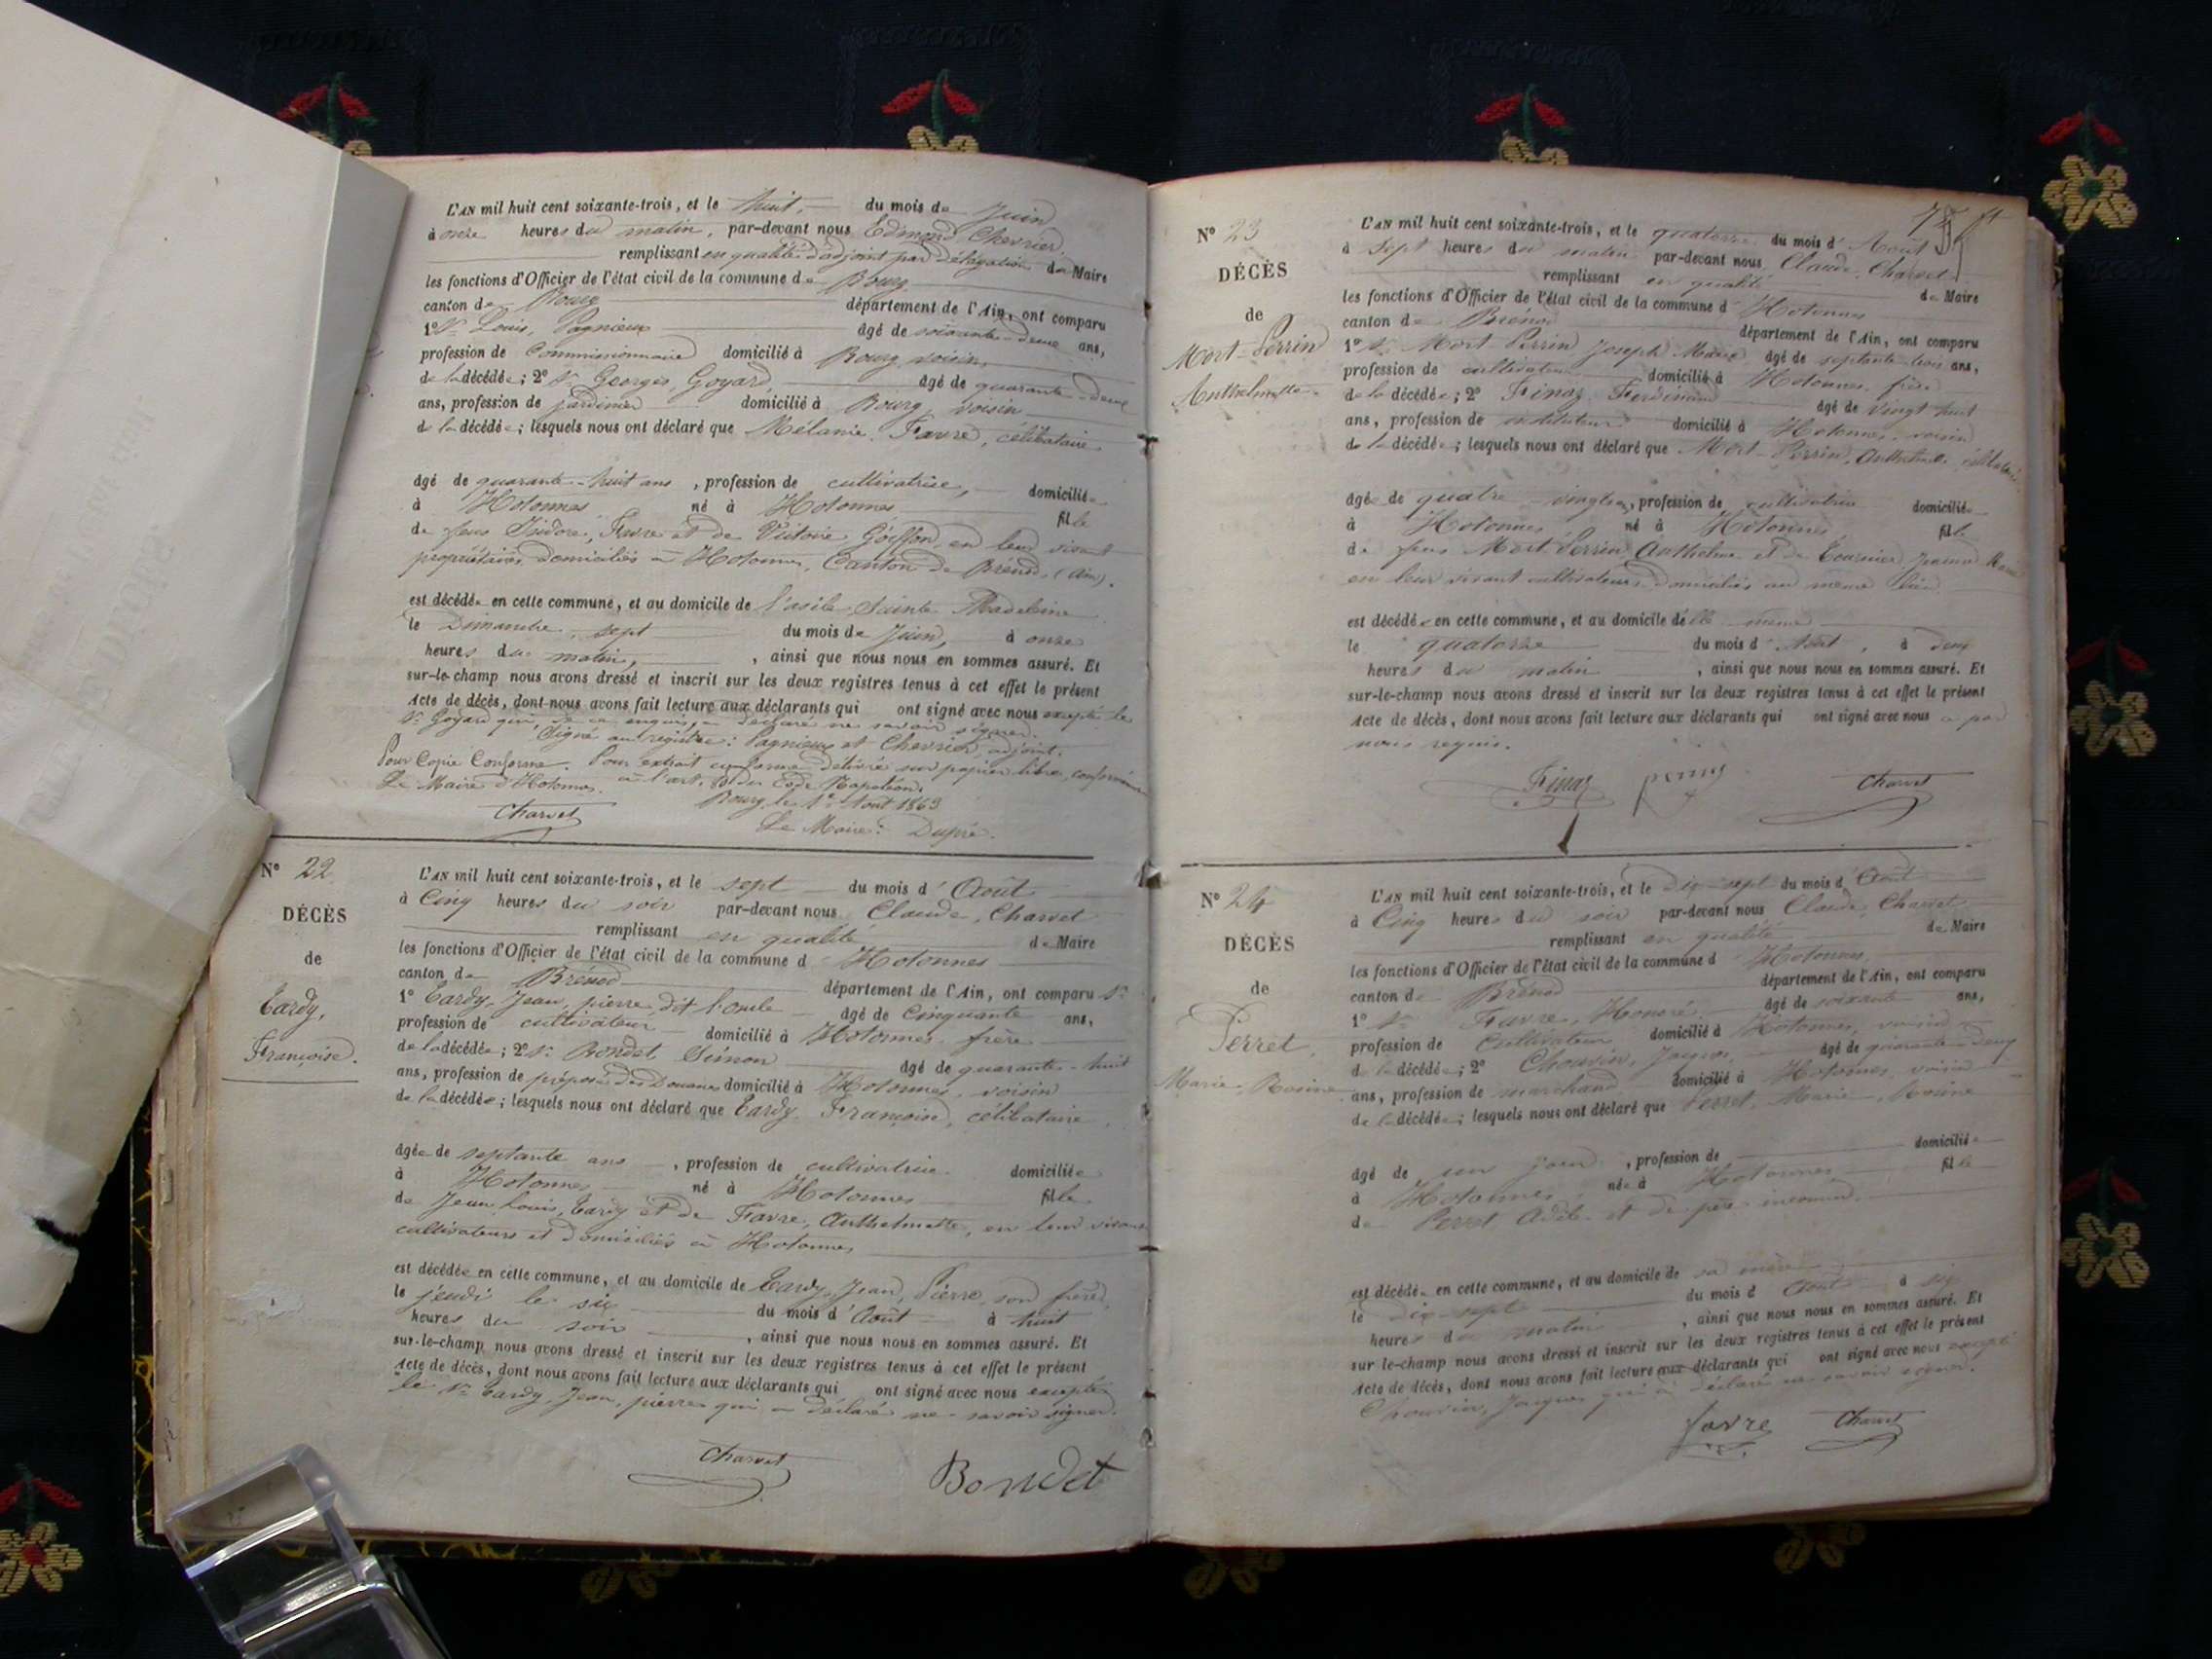 L'AN mil huit cent soixante-trois, et le huit, du mois de Juin
à onze heures du matin, par-devant nous Edmond Chevrier,
remplissant en qualité d'adjoint par délégation de Maire
les fonctions d'Officier de l'état civil de la commune de Bourg
canton de Bourg département de l'Ain, ont comparu
1° Sr Louis, Pagnieux âgé de soixante-deux ans,
profession de Commissionnaire domicilié à Bourg, voisin
de la décédée; 2° Sr Georges, Goyard, âgé de quarante-deux
ans, profession de jardinier domicilié à Bourg, voisin
de la décédée; lesquels nous ont déclaré que Mélanie, Favre, célibataire
âgé de quarante-huit ans, profession de cultivatrice, domiciliée
à Hotonnes né à Hotonnes fille
de feus Isidore, Favre et de Victoire Goiffon, en leur vivant
propriétaires, domiciliés à Hotonnes, Canton de Brénod, (Ain).
est décédée en cette commune, et au domicile de l'asile Sainte Madeleine
le Dimanche, sept du mois de Juin, à onze
heures du matin, ainsi que nous nous en sommes assuré. Et
sur-le-champ nous avons dressé et inscrit sur les deux registres tenus à cet effet le présent
Acte de décès, dont nous avons fait lecture aux déclarants qui ont signé avec nous excepté le
Sr Goyard qui, de ce enquis, a déclaré ne savoir signer.
Signé au registre: Pagnieux et Chevrier, adjoint.
Pour Copie Conforme. Pour extrait conforme délivré sur papier libre, conformément
Le Maire d'Hotonnes. à l'art. 80 du Code Napoléon.
Charvet Bourg, le 1er Août 1863
Le Maire: Dupré.
N° 22
DÉCÈS
de
Tardy,
Françoise.
L'AN mil huit cent soixante-trois, et le sept du mois d'Août
à Cinq heures du soir par-devant nous Claude, Charvet
remplissant en qualité de Maire
les fonctions d'Officier de l'état civil de la commune d Hotonnes
canton de Brénod département de l'Ain, ont comparu Sr
1° Tardy, Jean, pierre, dit l'oncle âgé de Cinquante ans,
profession de cultivateur domicilié à Hotonnes, frère
de la décédée; 2° Sr Bondet, Sinon âgé de quarante-huit
ans, profession de préposé des Douanes domicilié à Hotonnes, voisin
de la décédée; lesquels nous ont déclaré que Tardy Françoise, célibataire,
âgée de septante ans, profession de cultivatrice domiciliée
à Hotonnes né à Hotonnes fille
de Jean Louis, Tardy et de Favre, Anthelmette, en leur vivant
cultivateurs et domiciliés à Hotonnes
est décédée en cette commune, et au domicile de Tardy, Jean, Pierre, son frère,
le jeudi le six du mois d'Août à huit
heures du soir, ainsi que nous nous en sommes assuré. Et
sur-le-champ nous avons dressé et inscrit sur les deux registres tenus à cet effet le présent
Acte de décès, dont nous avons fait lecture aux déclarants qui ont signé avec nous excepté
le Sr Tardy, Jean, pierre qui a déclaré ne savoir signer.
Charvet Bondet
N° 23
DÉCÈS
de
Mort-Perrin
Anthelmette
L'AN mil huit cent soixante-trois, et le quatorze du mois d'Août
à Sept heures du matin par-devant nous Claude, Charvet
remplissant en qualité de Maire
les fonctions d'Officier de l'état civil de la commune d'Hotonnes
canton de Brénod département de l'Ain, ont comparu
1° Sr Mort Perrin Joseph Marie âgé de septante trois ans,
profession de cultivateur domicilié à Hotonnes, frère
de la décédée; 2° Finaz Ferdinand âgé de vingt huit
ans, profession de instituteur domicilié à Hotonnes, voisin
de la décédée; lesquels nous ont déclaré que Mort-Perrin, Anthelmette célibataire
âgée de quatre-vingts, profession de cultivatrice domiciliée
à Hotonnes né à Hotonnes fille
de feus Mort Perrin Anthelme et de Tournier
en leur vivant cultivateurs, domiciliés au même lieu
est décédée en cette commune, et au domicile d'elle même
le quatorze du mois d'Août, à deux
heures du matin, ainsi que nous nous en sommes assuré. Et
sur-le-champ nous avons dressé et inscrit sur les deux registres tenus à cet effet le présent
Acte de décès, dont nous avons fait lecture aux déclarants qui ont signé avec nous à par
nous requis.
Finaz Charvet
N° 24
DÉCÈS
de
Perret,
Marie, Rosine
L'AN mil huit cent soixante-trois, et le dix-sept du mois d'Août
à Cinq heures du soir par-devant nous Claude, Charvet
remplissant en qualité de Maire
les fonctions d'Officier de l'état civil de la commune d Hotonnes,
canton de Brénod département de l'Ain, ont comparu
1° Sr Favre, Honoré âgé de soixante ans,
profession de Cultivateur domicilié à Hotonnes, voisin
de la décédée; 2° Chouvin, Jacques, âgé de quarante-deux
ans, profession de marchand domicilié à Hotonnes, voisin
de la décédée; lesquels nous ont déclaré que Perret, Marie, Rosine
âgé de un jour, profession de domiciliée
à Hotonnes née à Hotonnes fille
de Perret Adèle et de père inconnu.
est décédée en cette commune, et au domicile de sa mère
le dix-sept du mois d Août à six
heures du matin, ainsi que nous nous en sommes assuré. Et
sur le-champ nous avons dressé et inscrit sur les deux registres tenus à cet effet le présent
Acte de décès, dont nous avons fait lecture aux déclarants qui ont signé avec nous excepté
Chouvin, Jacques qui a déclaré ne savoir signer.
favre Charvet